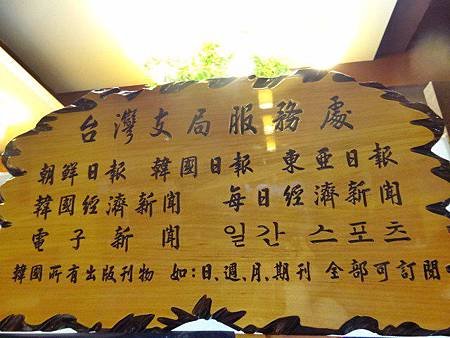 台灣支局服務處
朝鮮日報 韓國日報 東亜日報
韓國經濟新聞 每日經濟新聞
電子新聞 일간 스포츠
韓國所有出版刊物 如:日、週、月、期刊 全部可訂閱